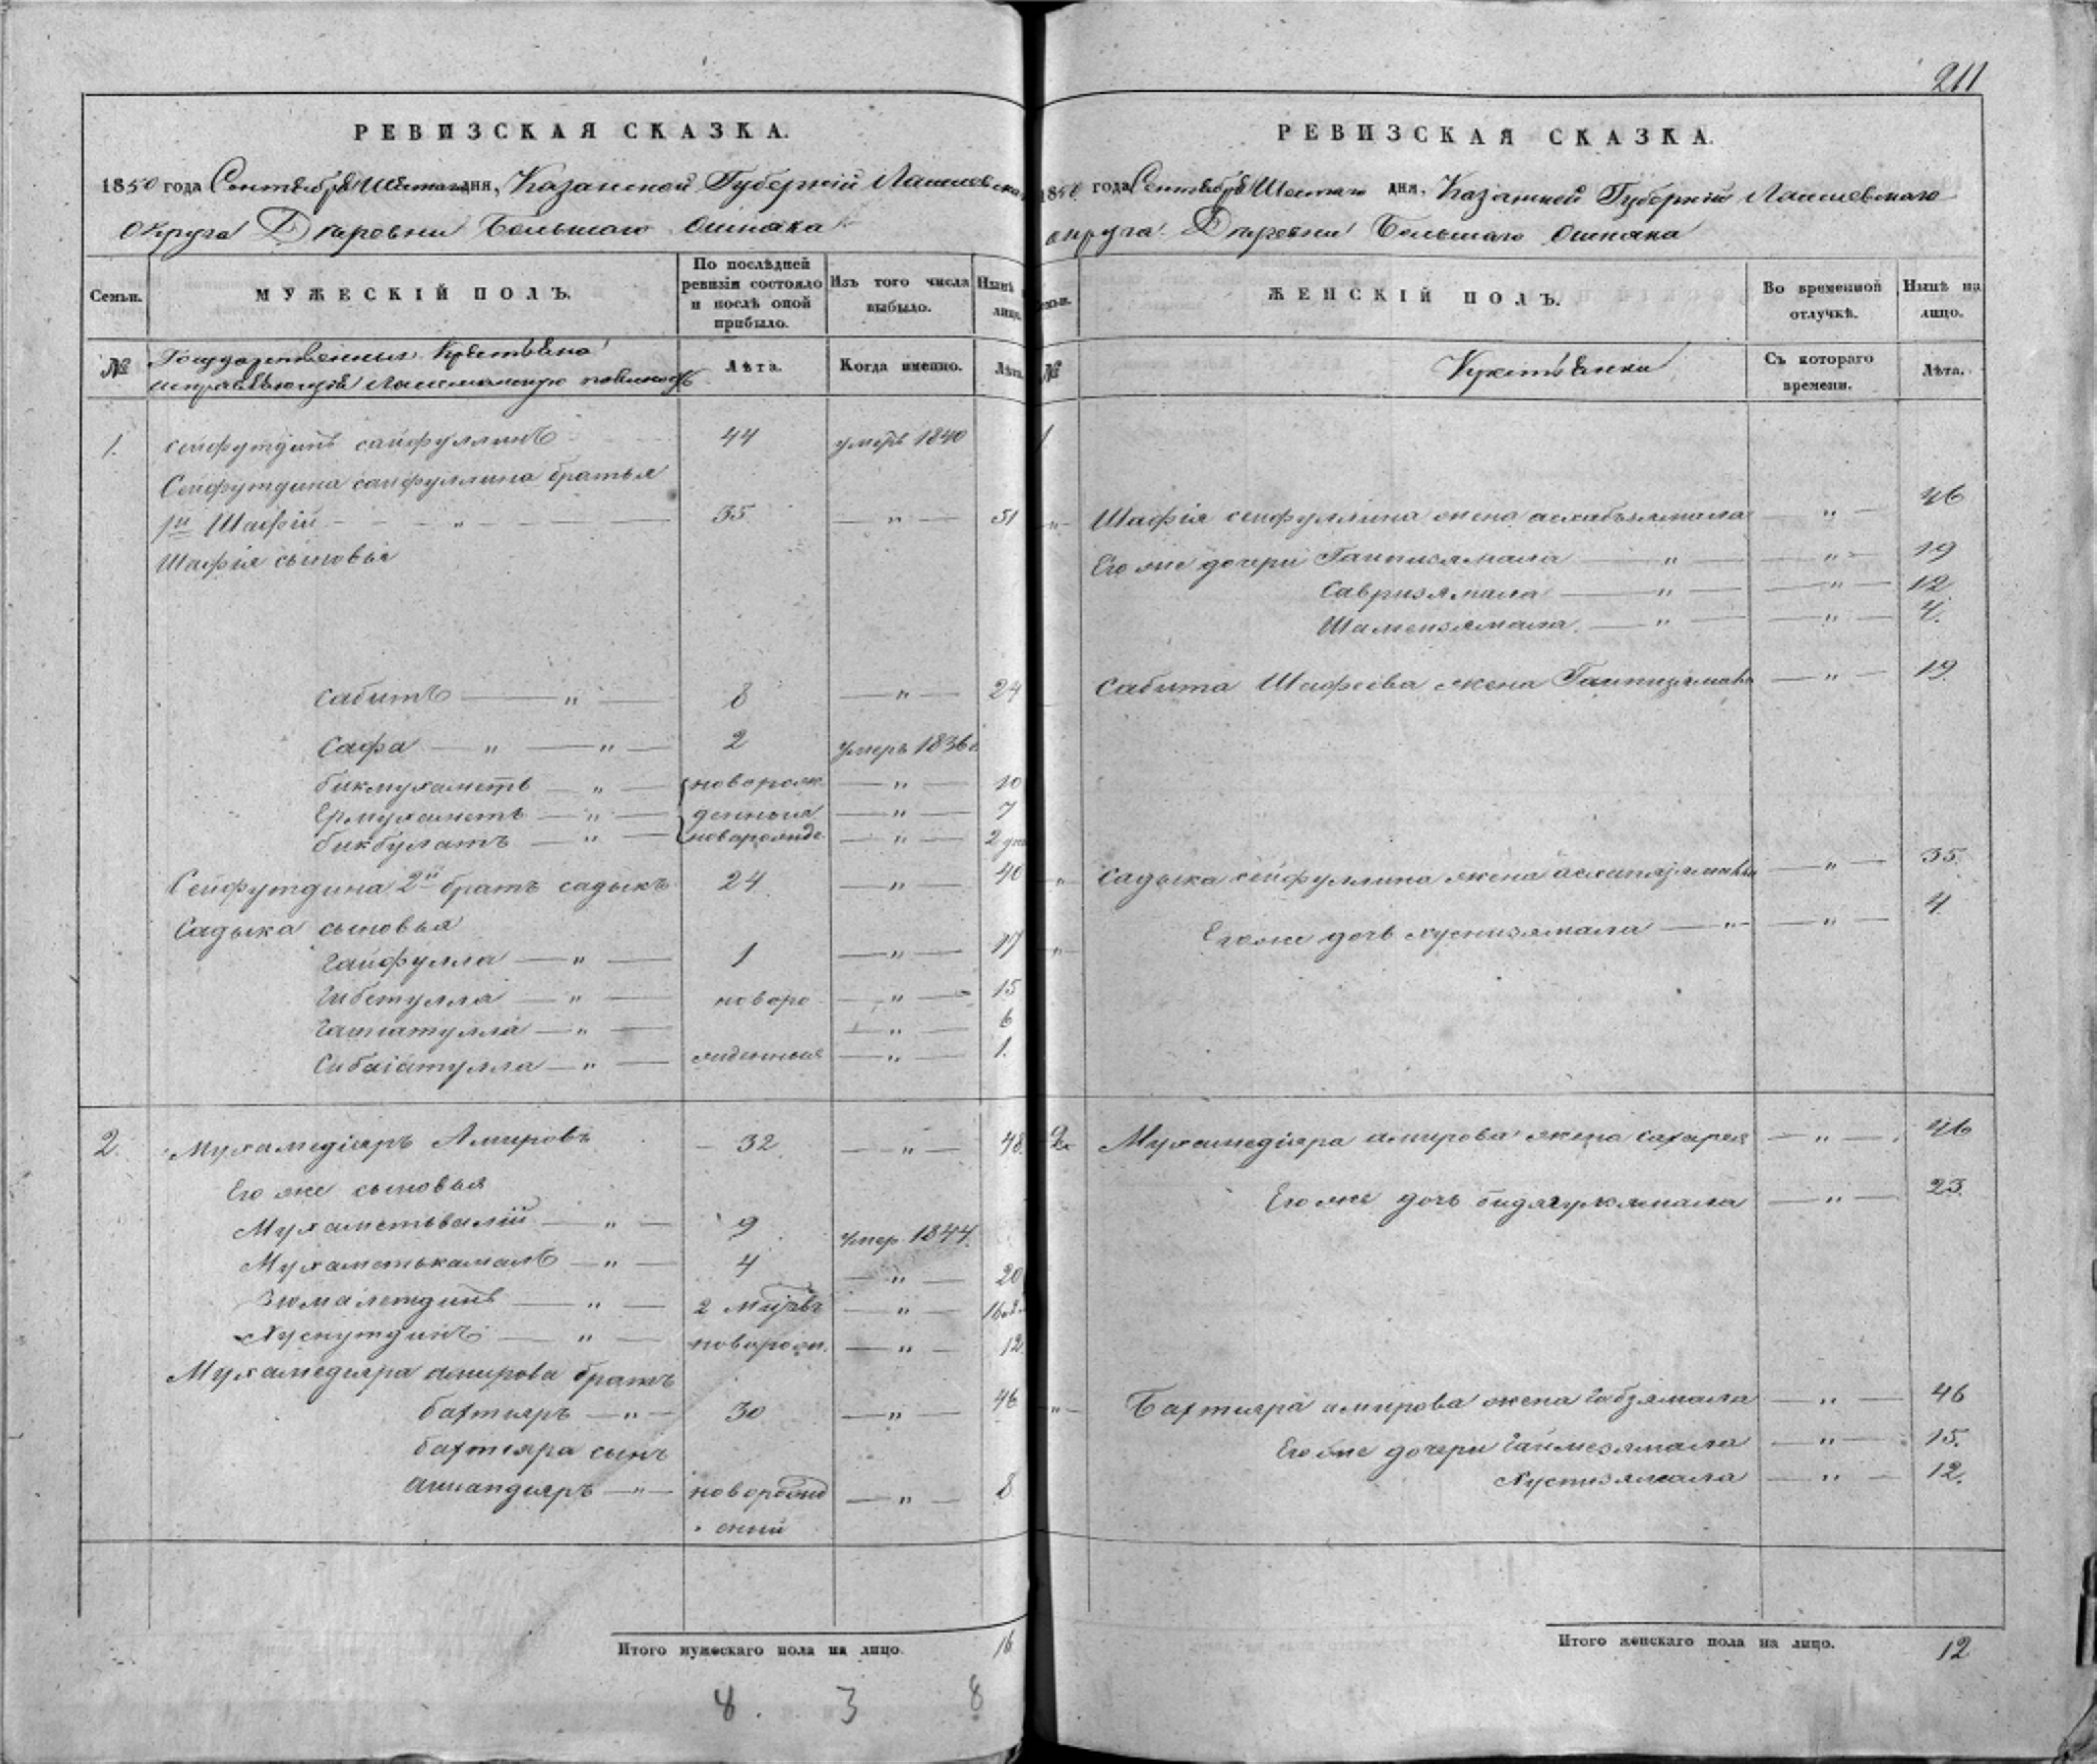 211
РЕВИЗСКАЯ СКАЗКА.
1850 года Сентября Шестаго дня, Казанской Губернии Лаишевскаго
округа Деревни Большаго Ошняка
Семьи.
МУЖЕСКІЙ ПОЛЪ.
По послѣдней ревизіи состояло и послѣ оной прибыло.
Изъ того числа выбыло.
Нынѣ на лицо.
№
Государственныя Крестьяна
исправляющіи Лашманскую повинность
Лѣта.
Когда именно.
Лѣта.
1. Сейфутдинъ сайфуллинъ 44 умеръ 1840
Сейфутдина сайфуллина братья
1й Шафій — " — 35 — " — 51
Шафія сыновья
Сабитъ — " — 8 — " — 24
Сафа — " — " — 2 умеръ 1836
бикмухаметъ — " — новорож — " — 10
Ермухаметъ — " — денныя — " — 7
бикбулатъ — " — новорожде — " — 2
Сейфутдина 2й братъ садыкъ 24 — " — 40
Садыка сыновья
Гайфулла — " — 1 — " — 17
Гибетулла — " — новоро — " — 15
— " — — " — 6
Сибагатулла — " — жденныя — " — 1.
2. Мухамедіяръ Амировъ 32 — " — 48
Его же сыновья
Мухаметьвалій — " — 9 умер 1844
Мухаметькамалъ — " — 4 — " — 20
— " — 2 — " — 16
Хуснутдинъ — " — новорож. — " — 12
Мухамедіяра амирова братъ
бахтияръ — " — 30 — " — 46
бахтияра сынъ
— " — новорожд — " — 8
енный
Итого мужескаго пола на лицо. 16
4. 3 8
РЕВИЗСКАЯ СКАЗКА.
1850 года Сентября Шестаго дня, Казанской Губерніи Лаишевскаго
округа Деревни Большаго Ошняка
Семьи.
ЖЕНСКІЙ ПОЛЪ.
Во временной отлучкѣ.
Нынѣ на лицо.
№
Крестьянки
Съ котораго времени.
Лѣта.
1
" Шафія сейфуллина жена — " — 46
Его же дочери — " — — " — 19
— " — — " — 12
— " — — " — 4.
Сабита Шафеева жена — " — 19
" Садыка сейфуллина жена — " — 35
" Его же дочь хуснизямала — " — — " — 4
2. Мухамедіяра амирова жена — " — 46
Его же дочь — " — 23
" Бахтияра амирова жена — " — 46
Его же дочери — " — 15.
Хуснизямала — " — 12.
Итого женскаго пола на лицо. 12